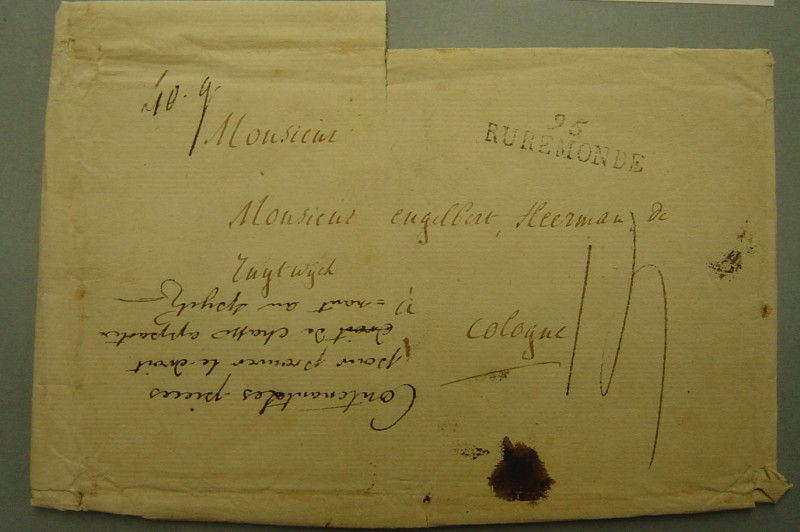 Monsieur
95
RUREMONDE
Monsieur engelbert, Heerman, de
Zuytwyck
Cologne
Contenant des pieces
pour prouver le droit
droit de chasse apparte
= nant au